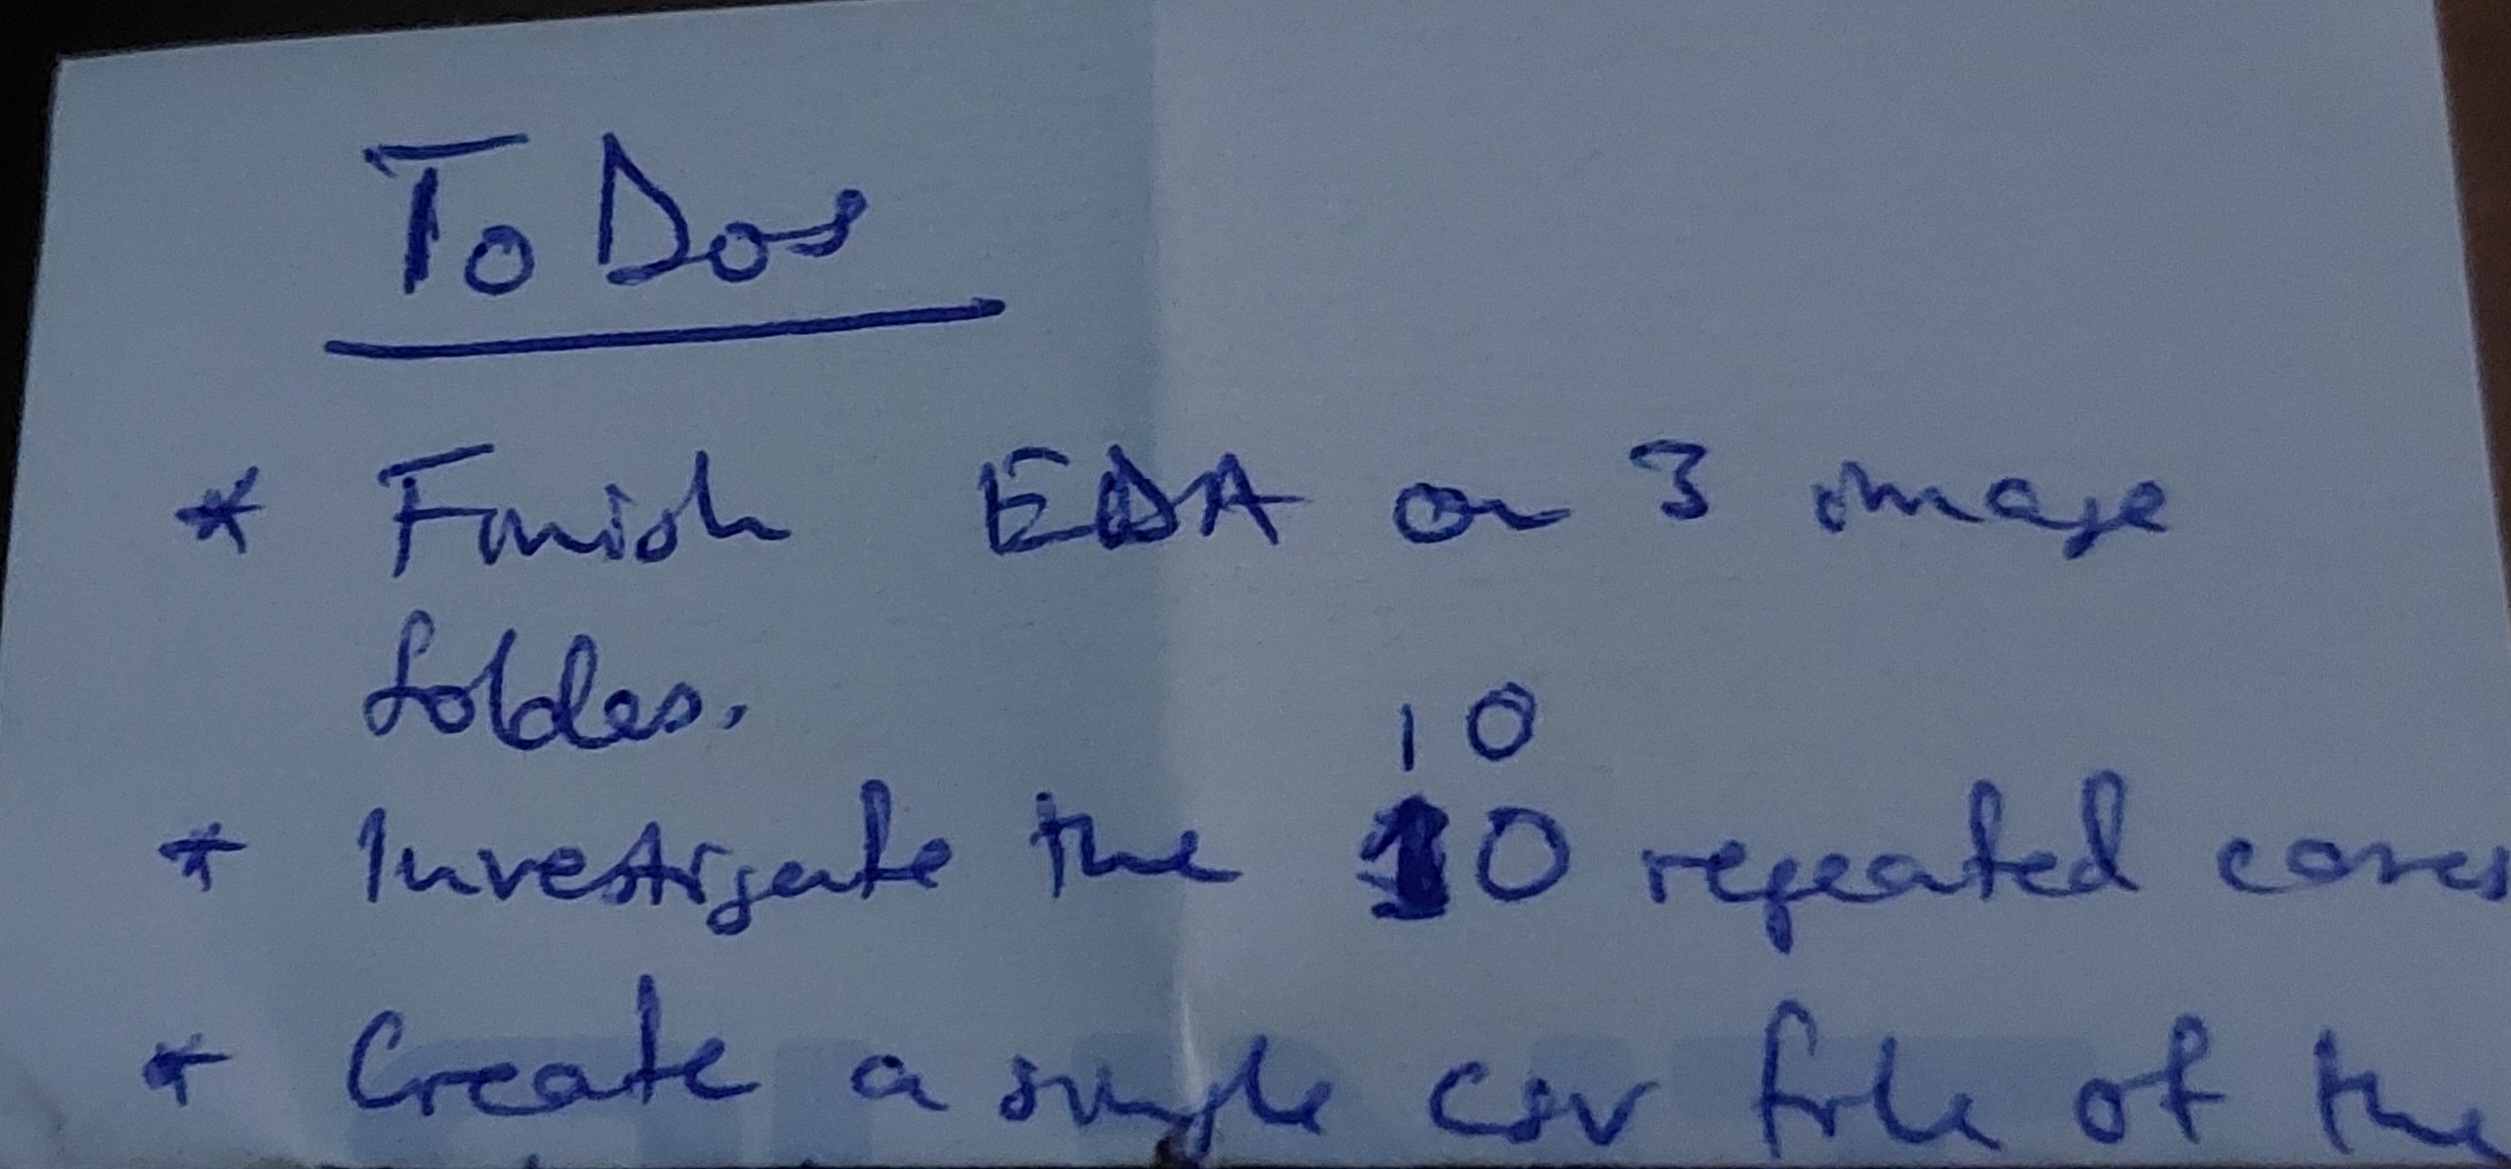 To Dos
* Finish EDA on 3 image
foldes.
10
* Investigate the 10 repeated cases
* Create a single csv file of the